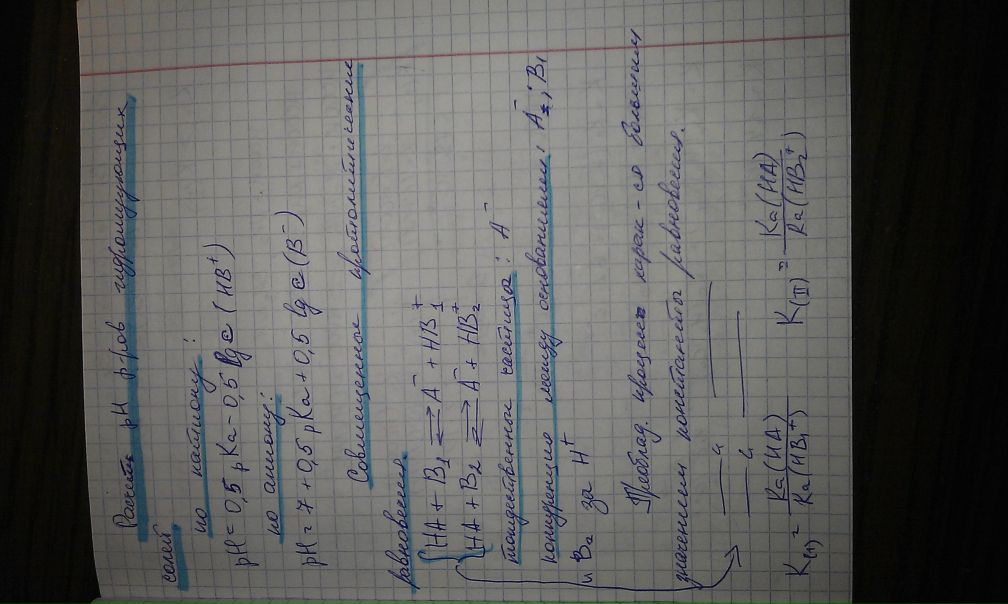 Расчёт pH р-ров гидролизующихся
солей
по катиону:
pH = 0,5 pKa - 0,5 lg c (HB⁺)
по аниону:
pH = 7 + 0,5 pKa + 0,5 lg c (B⁻)
Совмещённые протолитические
равновесия.
HA + B₁ ⇄ A⁻ + HB₁⁺
HA + B₂ ⇄ A⁻ + HB₂⁺
тождественные частицы: A⁻
конкуренция между основаниями: A⁻; B₁
и B₂ за H⁺
Преоблад. процесс харак-ся большим
значением константы равновесия.
K(I) = Ka(HA) / Ka(HB₁⁺) K(II) = Ka(HA) / Ka(HB₂⁺)